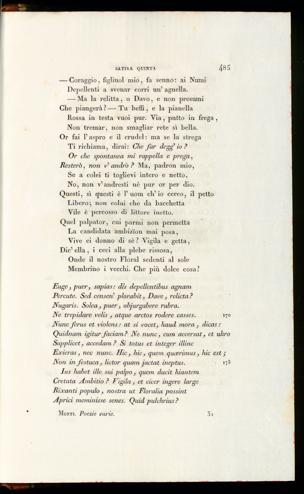 SATIRA QUINTA 485
— Coraggio, figliuol mio, fa senno: ai Numi
Depellenti a svenar corri un' agnella.
— Ma la relitta, o Davo, e non presumi
Che piangerà? — Tu beffi, e la pianella
Rossa in testa vuoi pur. Via, putto in frega,
Non tremar, non smagliar rete sì bella.
Or fai l'aspro e il crudel: ma se la strega
Ti richiama, dirai: Che far degg' io?
Or che spontanea mi rappella e prega,
Resterò, non v' andrò? Ma, padron mio,
Se a colei ti toglievi intero e netto,
No, non v'andresti nè pur or per dio.
Questi, sì questi è l' uom ch' io cerco, il petto
Libero; non colui che da bacchetta
Vile è percosso di littore inetto.
Quel palpator, cui parmi non permetta
La candidata ambizion mai posa,
Vive ei donno di sè? Vigila e getta,
Dic' ella, i ceci alla plebe rissosa,
Onde il nostro Floral sedenti al sole
Membrino i vecchi. Che più dolce cosa?
Euge, puer, sapias: dis depellentibus agnam
Percute. Sed censen' plorabit, Dave, relicta?
Nugaris. Solea, puer, objurgabere rubra.
Ne trepidare velis, atque arctos rodere casses. 170
Nunc ferus et violens: at si vocet, haud mora, dicas:
Quidnam igitur faciam? Ne nunc, cum accersat, et ultro
Supplicet, accedam? Si totus et integer illinc
Exieras, nec nunc. Hic, hic, quem quærimus, hic est;
Non in festuca, lictor quam jactat ineptus. 175
Jus habet ille sui palpo, quem ducit hiantem
Cretata Ambitio? Vigila, et cicer ingere large
Rixanti populo, nostra ut Floralia possint
Aprici meminisse senes. Quid pulchrius?
MONTI. Poesie varie. 31